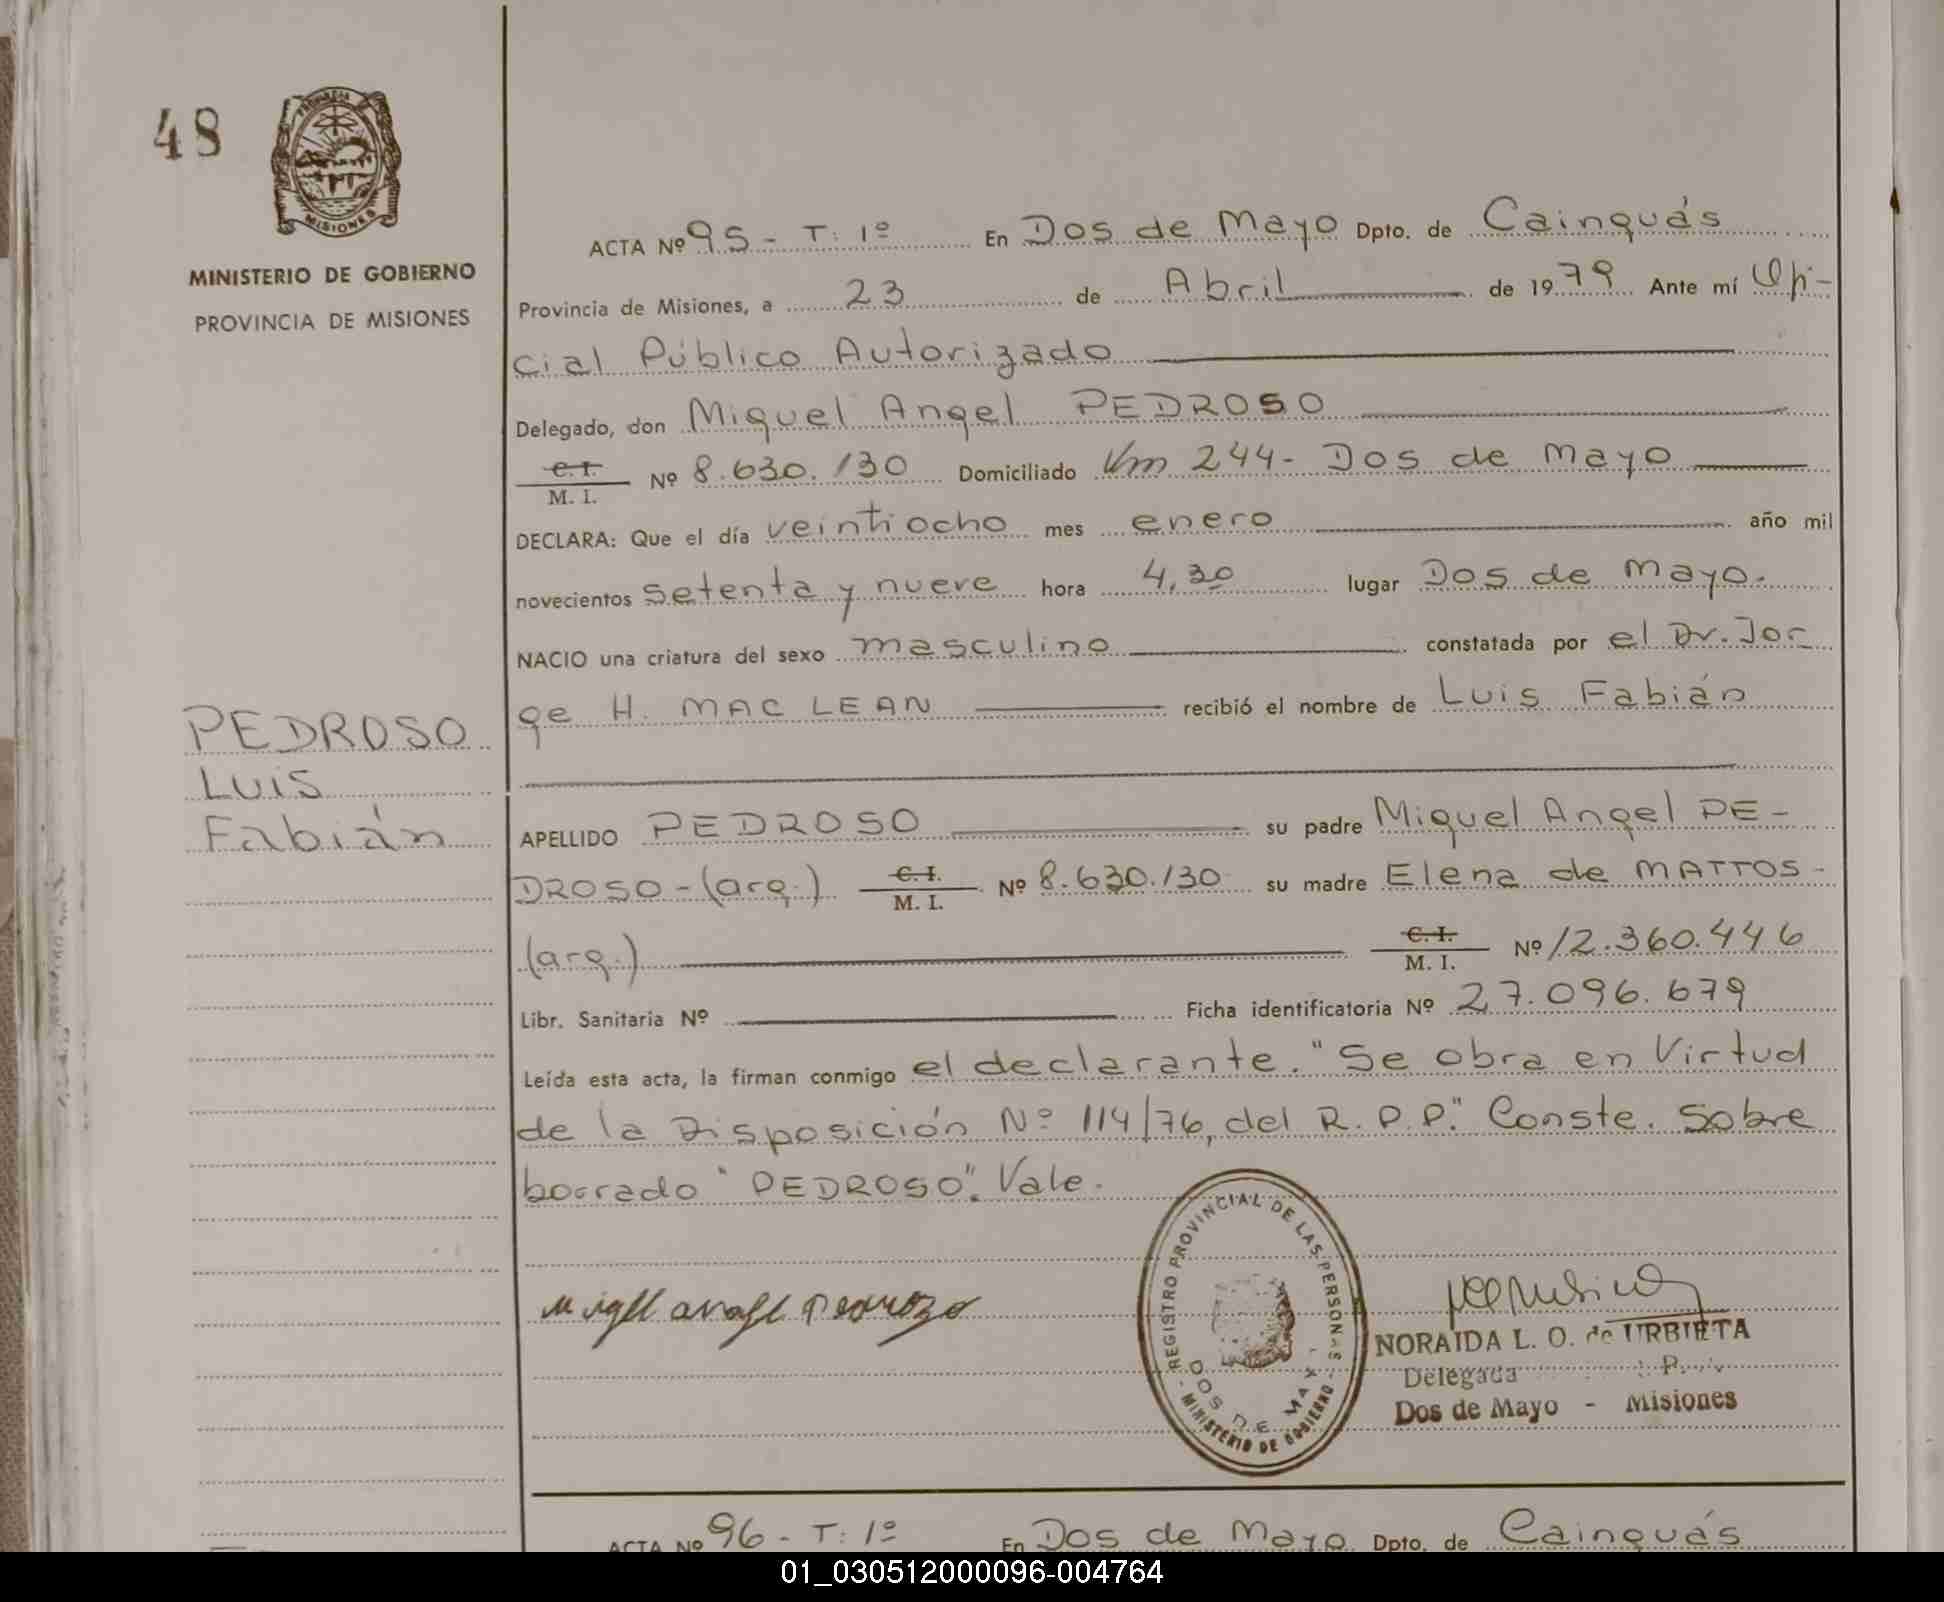 48
PROVINCIA
MISIONES
MINISTERIO DE GOBIERNO
PROVINCIA DE MISIONES
ACTA Nº 95 - T: 1º En Dos de Mayo Dpto. de Cainguás
Provincia de Misiones, a 23 de Abril de 1979 Ante mí Ofi-
cial Público Autorizado
Delegado, don Miguel Angel PEDROSO
C. I.
M. I. Nº 8.630.130 Domiciliado Km 244 - Dos de Mayo
DECLARA: Que el día veintiocho mes enero año mil
novecientos setenta y nueve hora 4,30 lugar Dos de Mayo.
NACIO una criatura del sexo masculino constatada por el Dr. Jor
ge H. MAC LEAN recibió el nombre de Luis Fabián
PEDROSO
Luis
Fabián
APELLIDO PEDROSO su padre Miguel Angel PE-
DROSO - (arg.) C. I. M. I. Nº 8.630.130 su madre Elena de MATTOS -
(arg.) C. I. M. I. Nº 12.360.446
Libr. Sanitaria Nº Ficha identificatoria Nº 27.096.679
Leída esta acta, la firman conmigo el declarante. "Se obra en Virtud
de la Disposición Nº 114/76, del R. P. P." Conste. Sobre
borrado "PEDROSO". Vale.
REGISTRO PROVINCIAL DE LAS PERSONAS
DOS DE MAYO
MINISTERIO DE GOBIERNO
NORAIDA L. O. de URBIETA
Delegada
Dos de Mayo - Misiones
ACTA Nº 96 - T: 1º En Dos de Mayo Dpto. de Cainguás
01_030512000096-004764